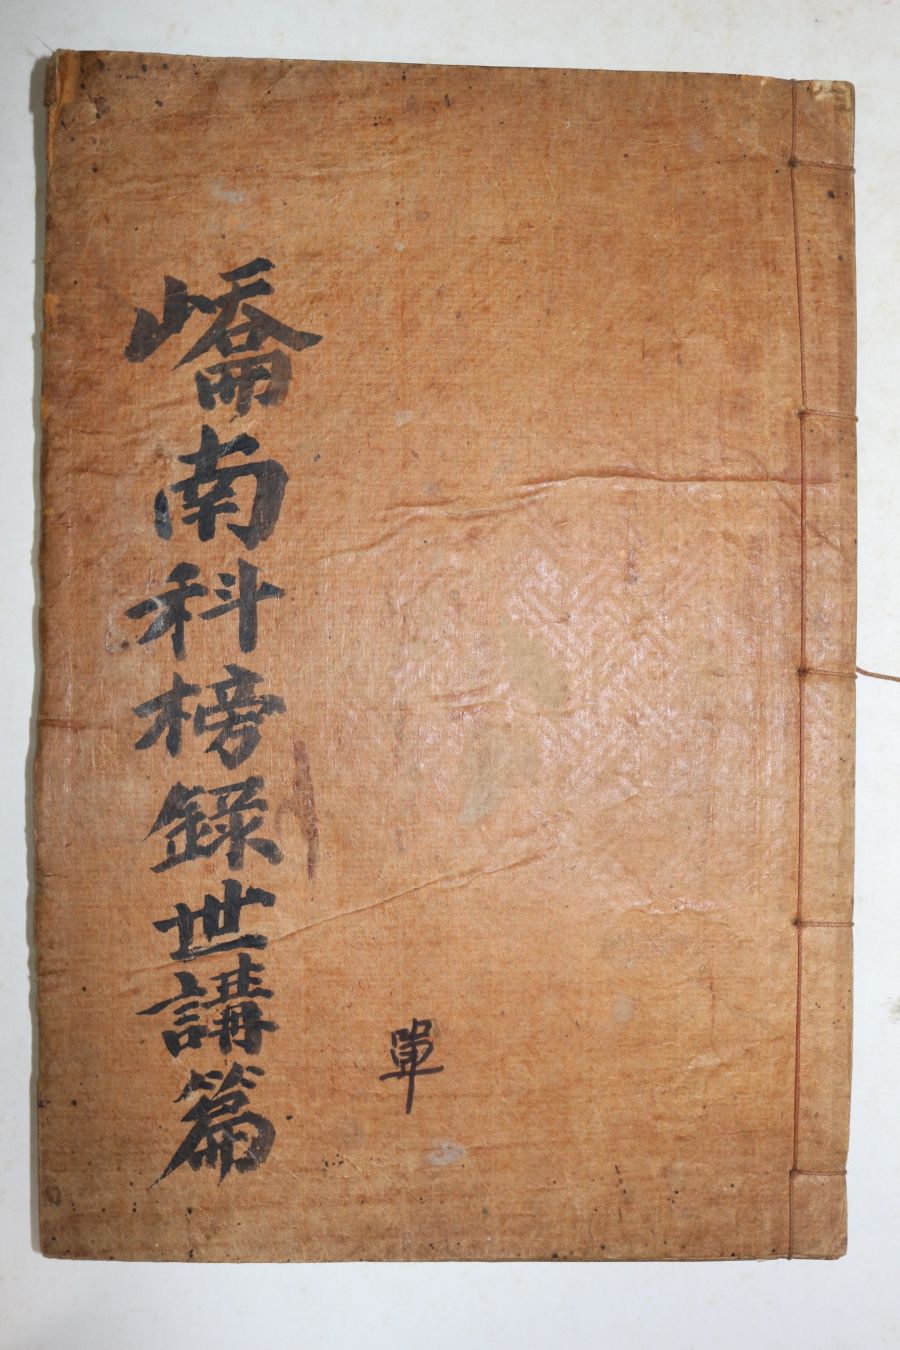 嶠南科榜錄世講篇
單